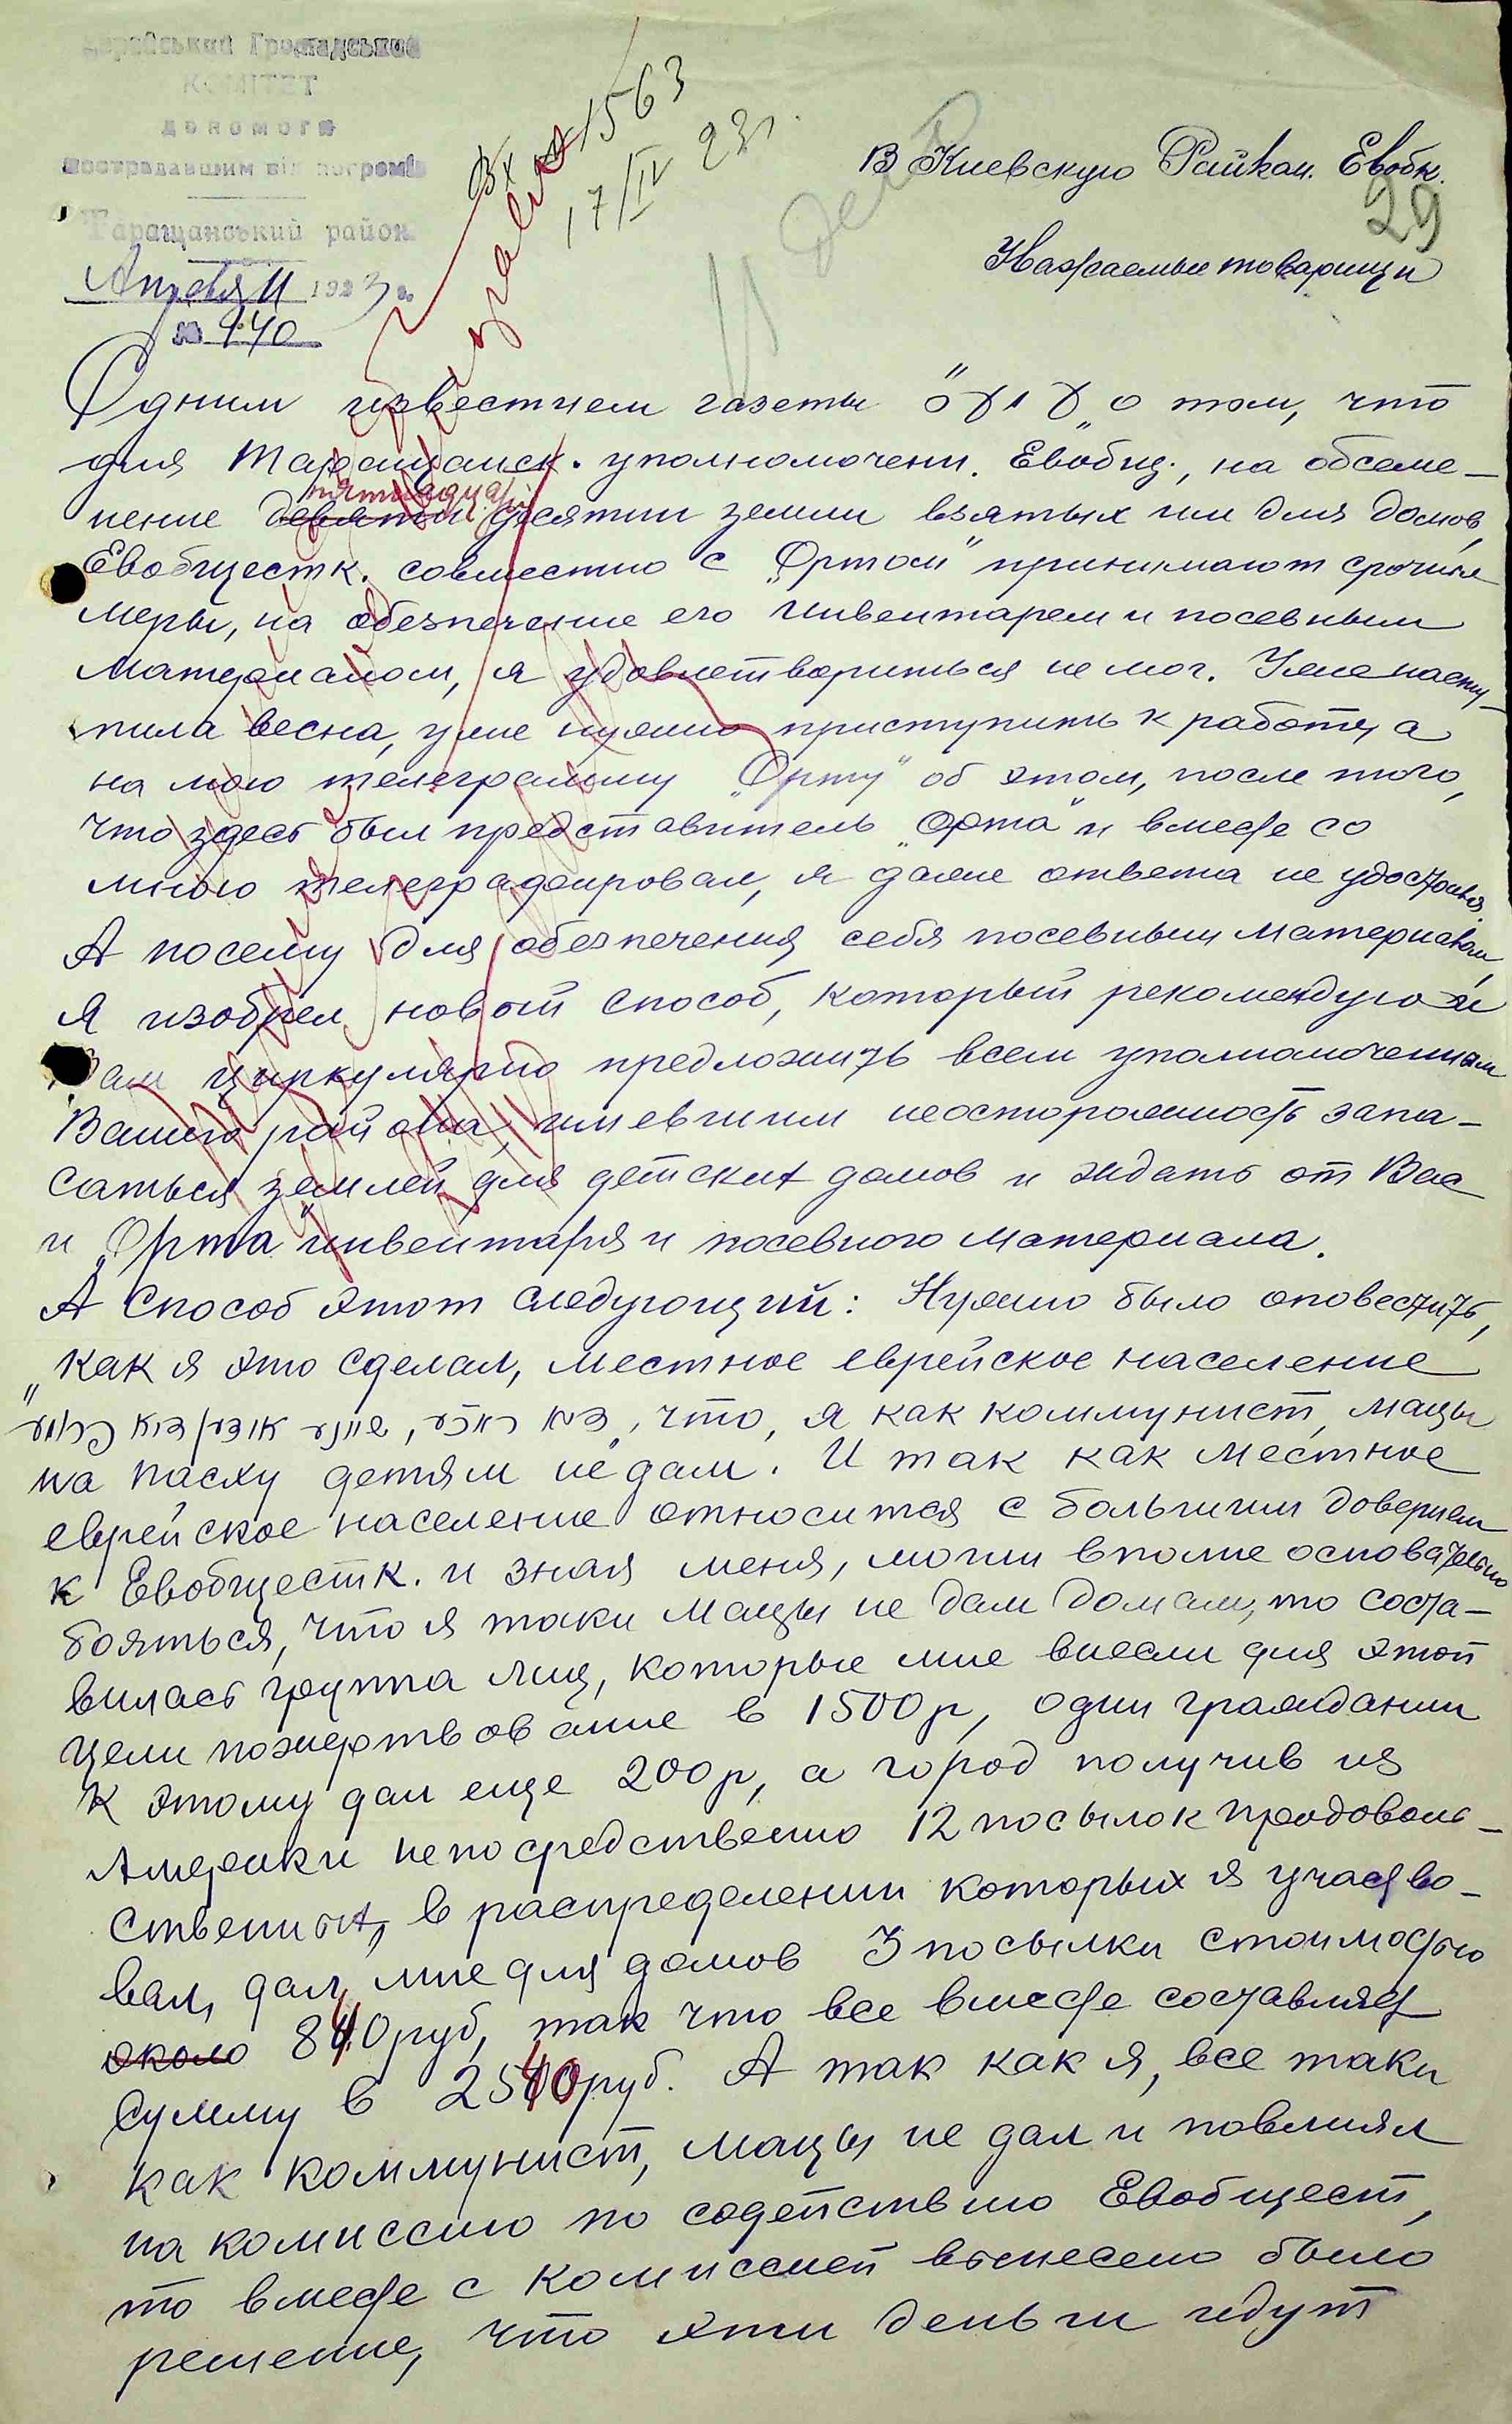 Єврейський Громадський
КОМІТЕТ
допомоги
пострадавшим від погромів
Таращанський район
Апреля 11 1923 г.
№ 440
Вх № 1563
17/IV 23 г.
В Киевскую Райком. Евобк.
29
Уважаемые товарищи
Одним известием газеты о том, что
для Таращанск. уполномочен. Евобщ., на обсеме-
пятнадцати
нение девяти десятин земли взятых им для домов,
Евобщестк. совместно с "Ортом" принимают срочные
меры, на обезпечение его инвентарем и посевным
материалом, я удовлетвориться не мог. Уже насту-
пила весна, уже нужно приступить к работе, а
на мою телеграмму "Орту" об этом, после того,
что здесь был представитель "Орта" и вместе со
мною телеграфировал, я даже ответа не удостоился.
А посему для обезпечения себя посевным материалом,
я изобрел новый способ, который рекомендую и
Вам циркулярно предложить всем уполномоченным
Вашего района, имевшим неосторожность запа-
саться землей для детских домов и ждать от Вас
и "Орта" инвентаря и посевного материала.
А способ этот следующий: Нужно было оповестить,
как я это сделал, местное еврейское население
что, я как коммунист, мацы
на пасху детям не дам. И так как местное
еврейское население относится с большим доверием
к Евобщестк. и зная меня, могли вполне основательно
бояться, что я таки мацы не дам домам, то соста-
вилась группа лиц, которые мне внесли для этой
цели пожертвование в 1500 р, один гражданин
к этому дал еще 200 р, а город получив из
Америки непосредственно 12 посылок продоволь-
ственных, в распределении которых я участво-
вал, дал мне для домов 3 посылки стоимостью
около 840 руб, так что все вместе составляет
сумму в 2540 руб. А так как я, все таки
как коммунист, мацы не дал и повлиял
на комиссию по содействию Евобщест,
то вместе с комиссией вынесено было
решение, что эти деньги идут